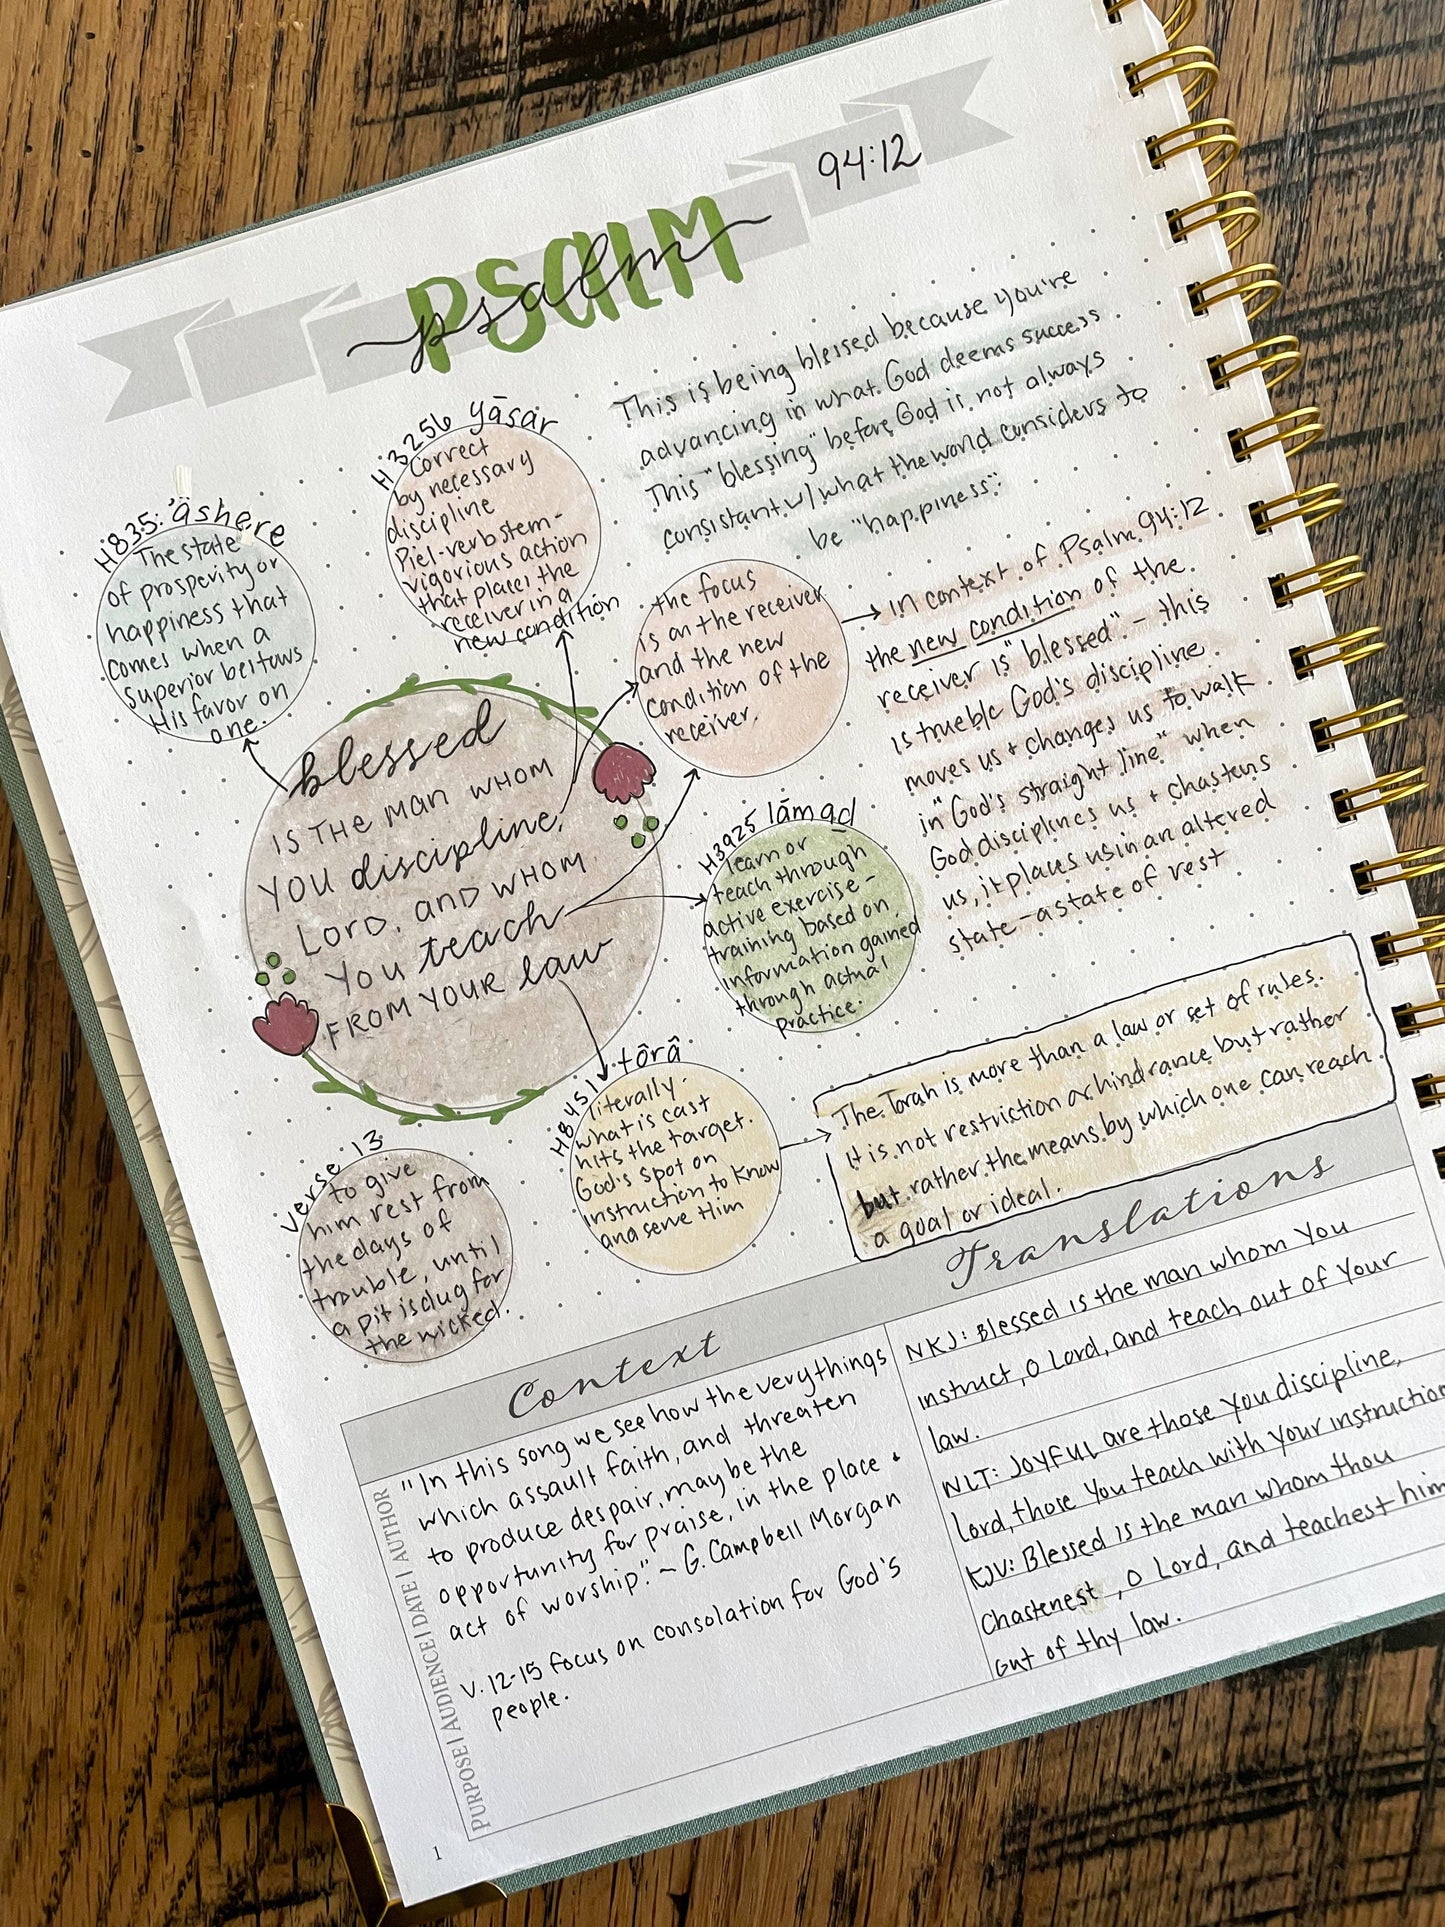 94:12
PSALM
psalm
This is being blessed because you're
advancing in what God deems success.
This "blessing" before God is not always
consistant w/ what the world considers to
be "happiness".
H3256 yāsar
Correct
by necessary
discipline
Piel-verb stem-
vigorious action
that places the
receiver in a
new condition
H835: 'ashere
The state
of prosperity or
happiness that
comes when a
Superior bestows
His favor on
one.
the focus
is on the receiver
and the new
condition of the
receiver.
in context of Psalm 94:12
the new condition of the
receiver is "blessed" - this
is true b/c God's discipline
moves us + changes us to walk
in "God's straight line" when
God disciplines us + chastens
us, it places us in an altered
state - a state of rest
blessed
IS THE MAN WHOM
YOU discipline,
LORD, AND WHOM
YOU teach
FROM YOUR law
H3925 lāmad
learn or
teach through
active exercise -
training based on
information gained
through actual
practice.
H8451 tôrâ
literally-
what is cast
hits the target.
God's spot on
instruction to know
and serve Him
The Torah is more than a law or set of rules.
It is not restriction or hindrance but rather
but rather the means by which one can reach
a goal or ideal.
verse 13
to give
him rest from
the days of
trouble, until
a pit is dug for
the wicked.
Context
"In this song we see how the very things
which assault faith, and threaten
to produce despair, may be the
opportunity for praise, in the place &
act of worship." ~ G. Campbell Morgan
V. 12-15 focus on consolation for God's
people.
PURPOSE | AUDIENCE | DATE | AUTHOR
Translations
NKJ: Blessed is the man whom You
instruct, O Lord, and teach out of Your
law.
NLT: Joyful are those you discipline,
Lord, those You teach with your instruction
KJV: Blessed is the man whom thou
Chastenest, O Lord, and teachest him
out of thy law.
1